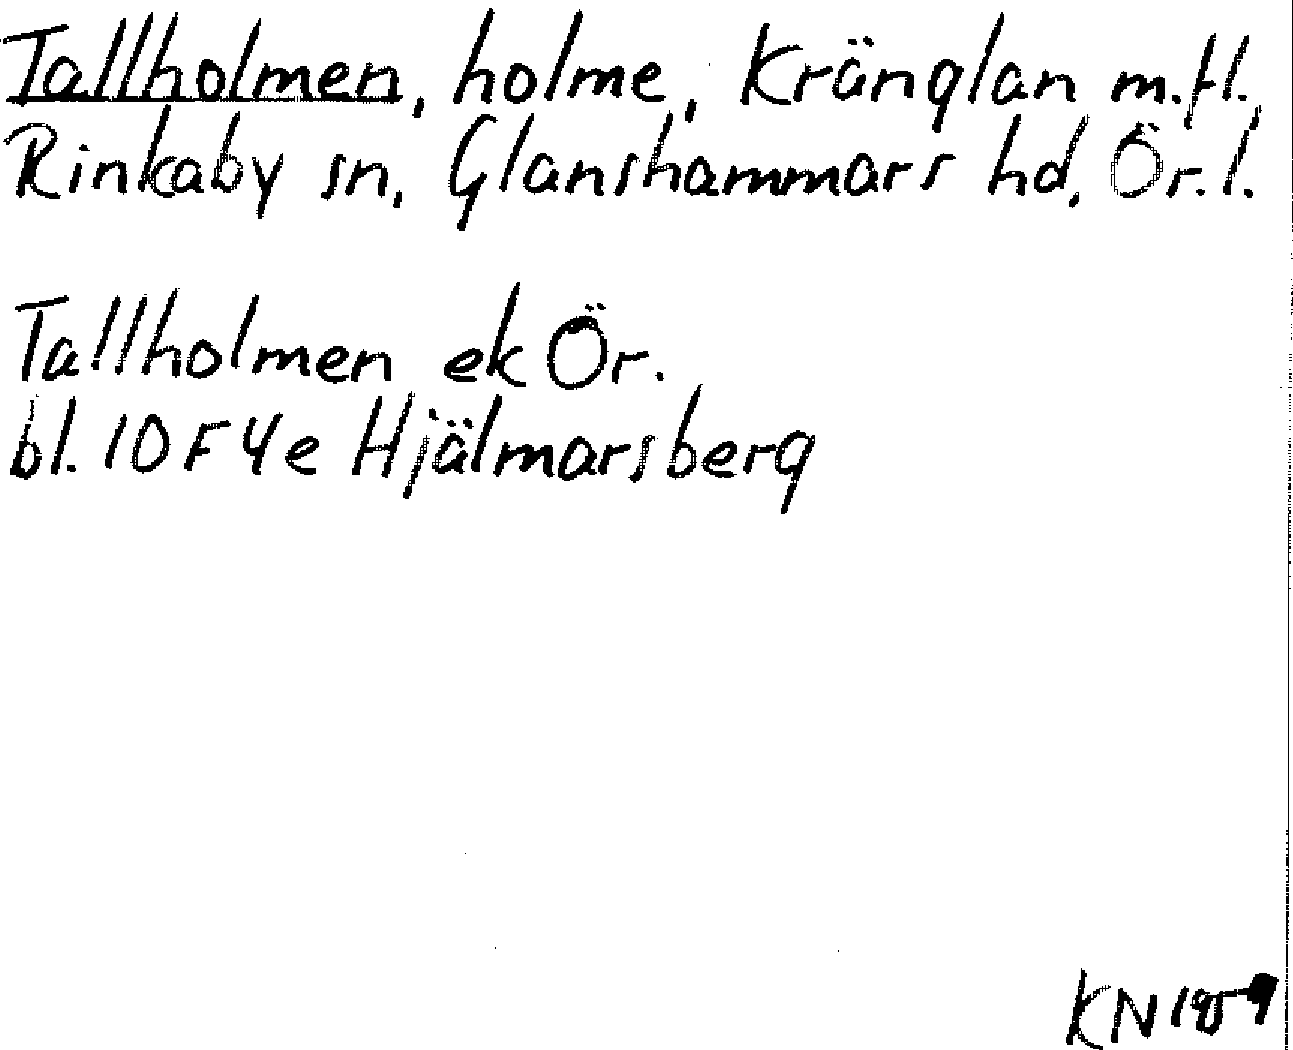 Tallholmen, holme, Kränglan m.fl.
Rinkaby sn, Glanshammars hd, Ör.l.
Tallholmen ek Ör.
bl. 10F4e Hjälmarsberg
KN